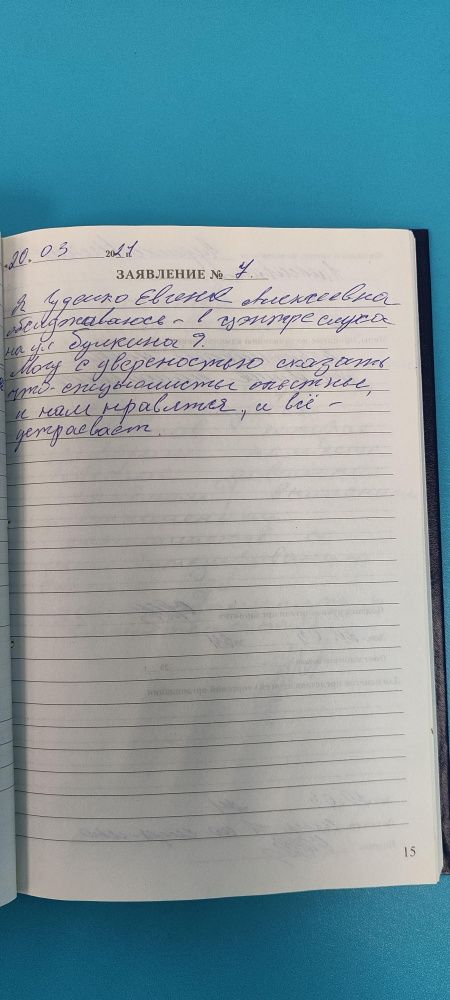 20. 03 2021 г.
ЗАЯВЛЕНИЕ № 7.
Я Гуденко Евгена Алексеевна
обслуживаюсь - в центре слуха
на ул булкина 9.
Могу с уверенностью сказать
что-специалисты опытные,
и нам нравятся, и всё -
устраевает.
15